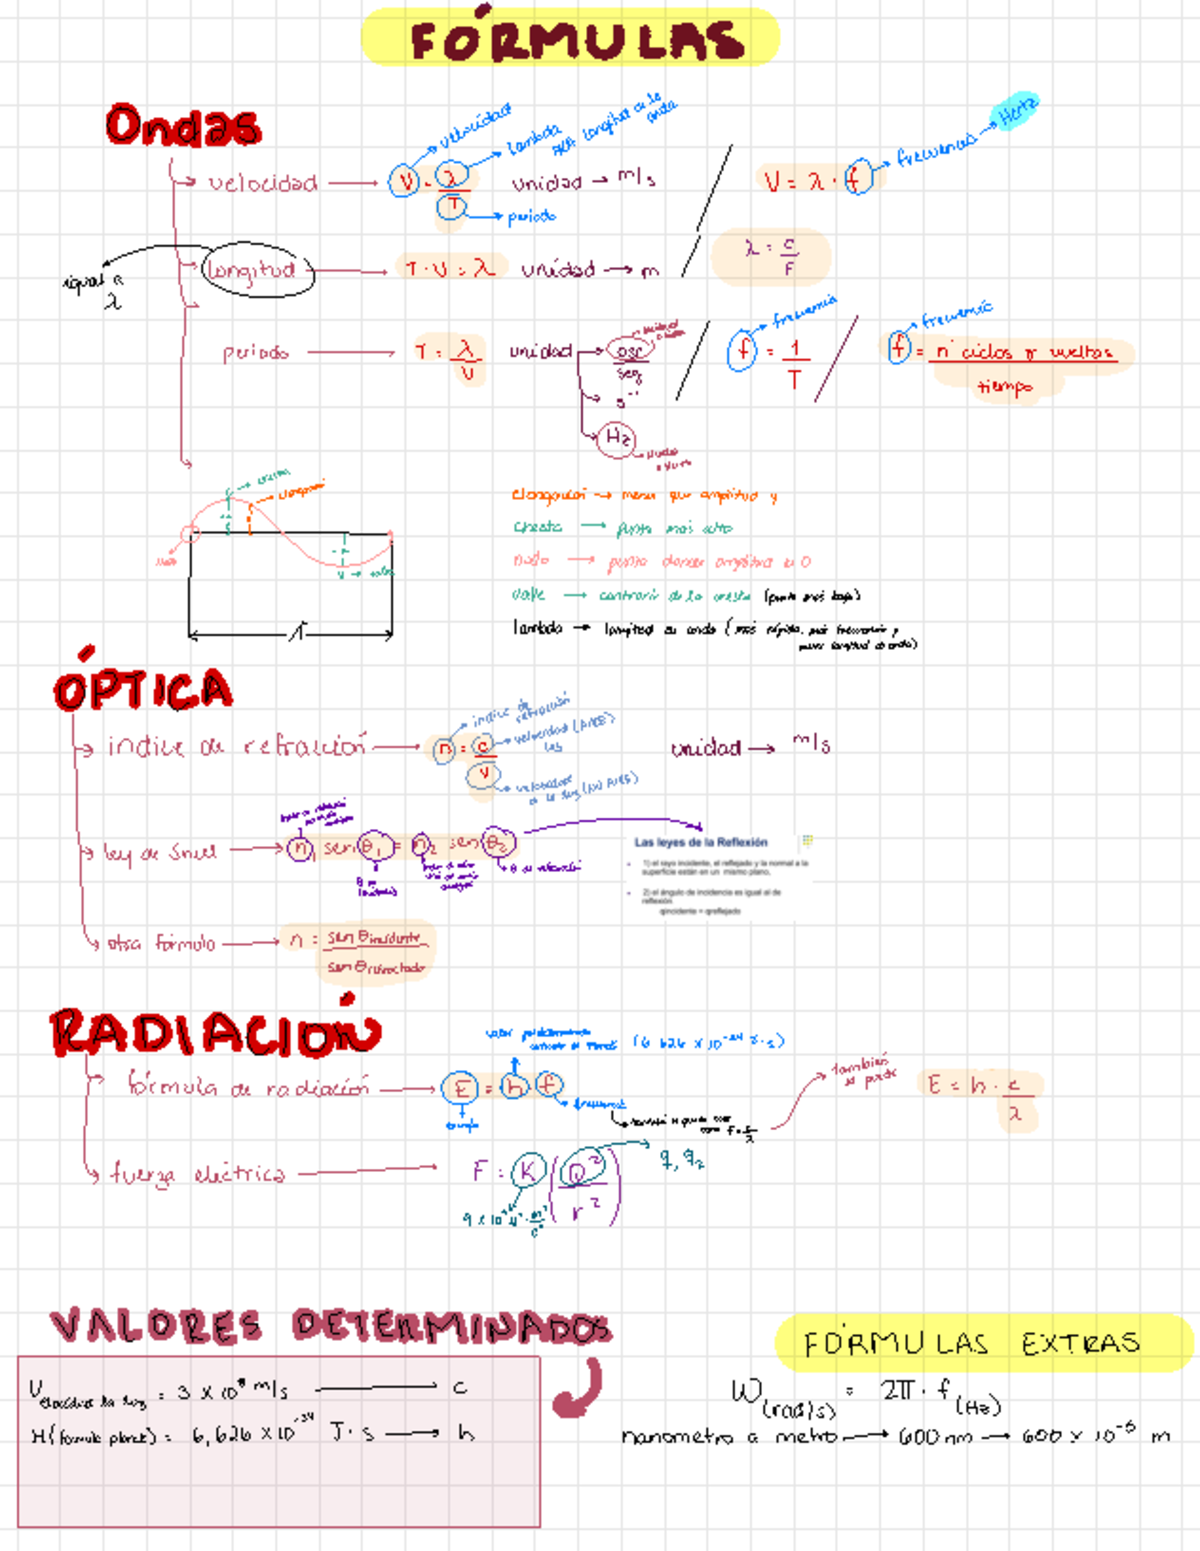 FÓRMULAS
Ondas
velocidad
V = λ / T
velocidad
lambda
longitud de la onda
periodo
unidad → m/s
V = λ · f
frecuencia
Hertz
longitud
igual a λ
T · V = λ
unidad → m
λ = c / F
periodo
T = λ / V
unidad
osc / seg
s⁻¹
Hz
f = 1 / T
frecuencia
f = n° ciclos o vueltas / tiempo
frecuencia
cresta
elongación
nodo
valle
λ
elongación → menor que amplitud y
cresta → punto más alto
nodo → punto donde amplitud es 0
valle → contrario de la cresta (punto más bajo)
lambda → longitud de onda (más rápida, más frecuencia y
menor longitud de onda)
ÓPTICA
indice de refracción
n = c / v
indice de refracción
velocidad
luz
unidad → m/s
ley de Snell
n₁ sen θ₁ = n₂ sen θ₂
θ de refracción
Las leyes de la Reflexión
1) el rayo incidente, el reflejado y la normal a la
superficie están en un mismo plano.
2) el ángulo de incidencia es igual al de
reflexión
qincidente = qreflejado
otra fórmula
n = sen θ incidente / sen θ refractado
RADIACIÓN
fórmula de radiación
(6.626 x 10⁻³⁴ J·s)
E = h f
energía
frecuencia
también se puede
E = h · c / λ
fuerza eléctrica
F = K (Q² / r²)
q₁ q₂
VALORES DETERMINADOS
Velocidad la luz = 3 x 10⁸ m/s → c
H (formula planck) = 6,626 x 10⁻³⁴ J·s → h
FÓRMULAS EXTRAS
W (rad/s) = 2π · f (Hz)
nanometro a metro → 600 nm → 600 x 10⁻⁶ m